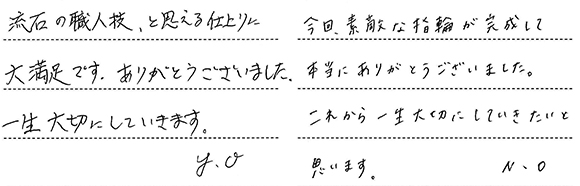 流石の職人技、と思える仕上りに
大満足です。ありがとうございました。
一生大切にしていきます。
y.o
今回、素敵な指輪が完成して
本当にありがとうございました。
これから一生大切にしていきたいと
思います。
N.O